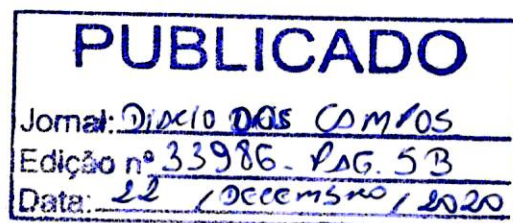 PUBLICADO
Jornal: DIÁRIO DOS CAMPOS
Edição nº 33986 - PÁG. 5B
Data: 22 / DEZEMBRO / 2020